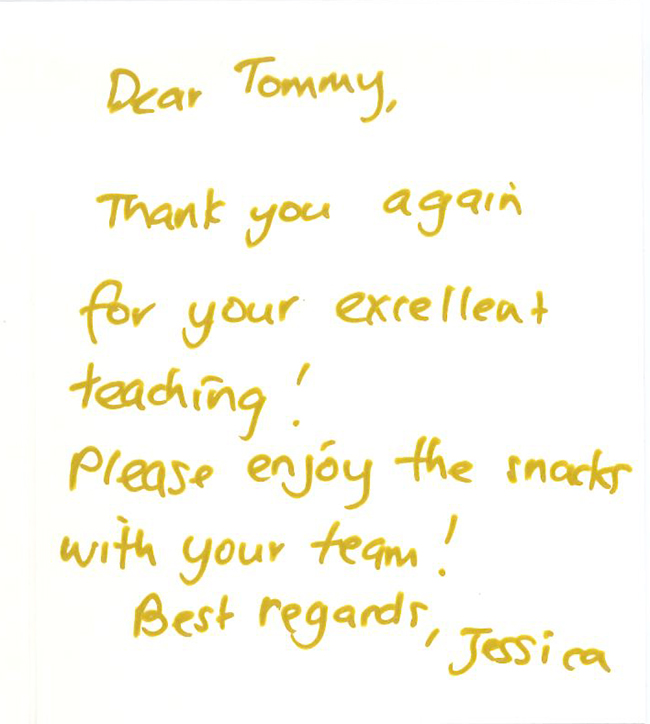 Dear Tommy,
Thank you again
for your excellent
teaching!
Please enjoy the snacks
with your team!
Best regards, Jessica